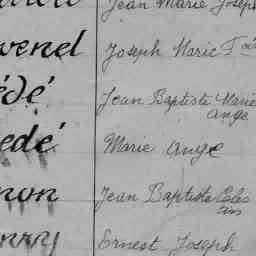 Jean Marie Joseph
venel Joseph Marie
édé Jean Baptiste Marie
Ange
edé Marie Ange
non Jean Baptiste
Ernest Joseph